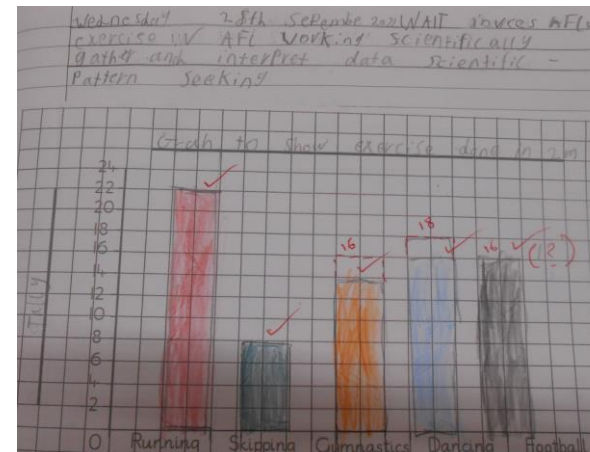 Wednesday 28th Sepembe 2022 WAIT
exercise AFL Working Scientifically
gather and interpret data scientific -
Pattern Seeking
Graph to show exercise done in 2m
24
22
20
18
16
14
12
10
8
6
4
2
0
Tally
16
18
16 (12)
Running Skipping Gymnastics Dancing Football